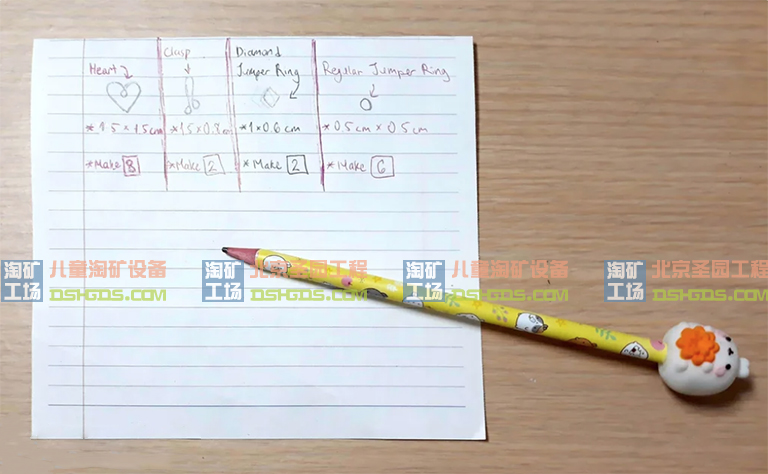 Heart
*1.5×1.5cm
*Make 8
Clasp
*1.5×0.8cm
*Make 2
Diamond
Jumper Ring
*1×0.6cm
*Make 2
Regular Jumper Ring
*0.5cm×0.5cm
*Make 6
淘矿工场 儿童淘矿设备 DSHGDS.COM
淘矿工场 北京圣园工程 DSHGDS.COM
淘矿工场 儿童淘矿设备 DSHGDS.COM
淘矿工场 北京圣园工程 DSHGDS.COM